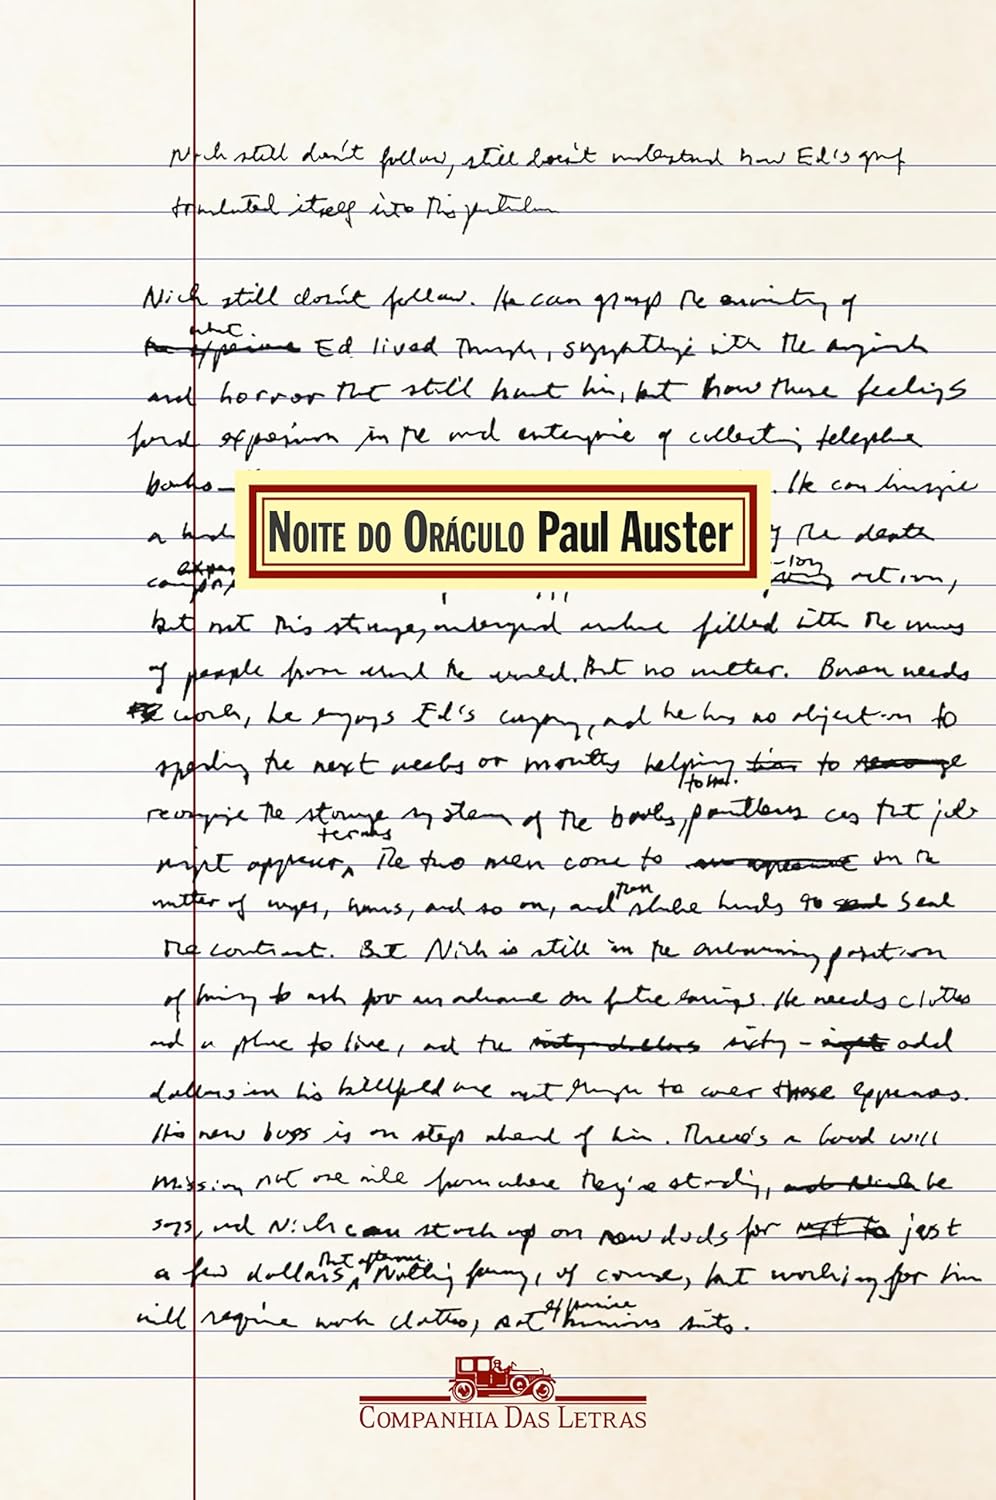 Nick still doesn't follow, still doesn't understand how Ed's grief
translated itself into this particular
Nick still doesn't follow. He can grasp the enormity of
what
Ed lived through, sympathize with the anguish
and horror that still haunt him, but how those feelings
found expression in the mad enterprise of collecting telephone
books – . He can imagine
a hundred of the death
camp action,
but not this strange, underground archive filled with the names
of people from around the world. But no matter. Bowen needs
work, he enjoys Ed's company, and he has no objection to
spending the next weeks or months helping to
to him.
reorganize the strange system of the books, pointless as that job
terms
might appear, The two men come to on the
matter of wages, hours, and so on, and then shake hands to seal
the contract. But Nick is still in the embarrassing position
of having to ask for an advance on future earnings. He needs clothes
and a place to live, and the sixty – odd
dollars in his billfold are not enough to cover those expenses.
His new boss is one step ahead of him. There's a Good will
Mission not one mile from where they're standing, he
says, and Nick can stock up on new duds for just
that afternoon.
a few dollars Nothing fancy, of course, but working for him
will require work clothes, not expensive business suits.
NOITE DO ORÁCULO Paul Auster
COMPANHIA DAS LETRAS